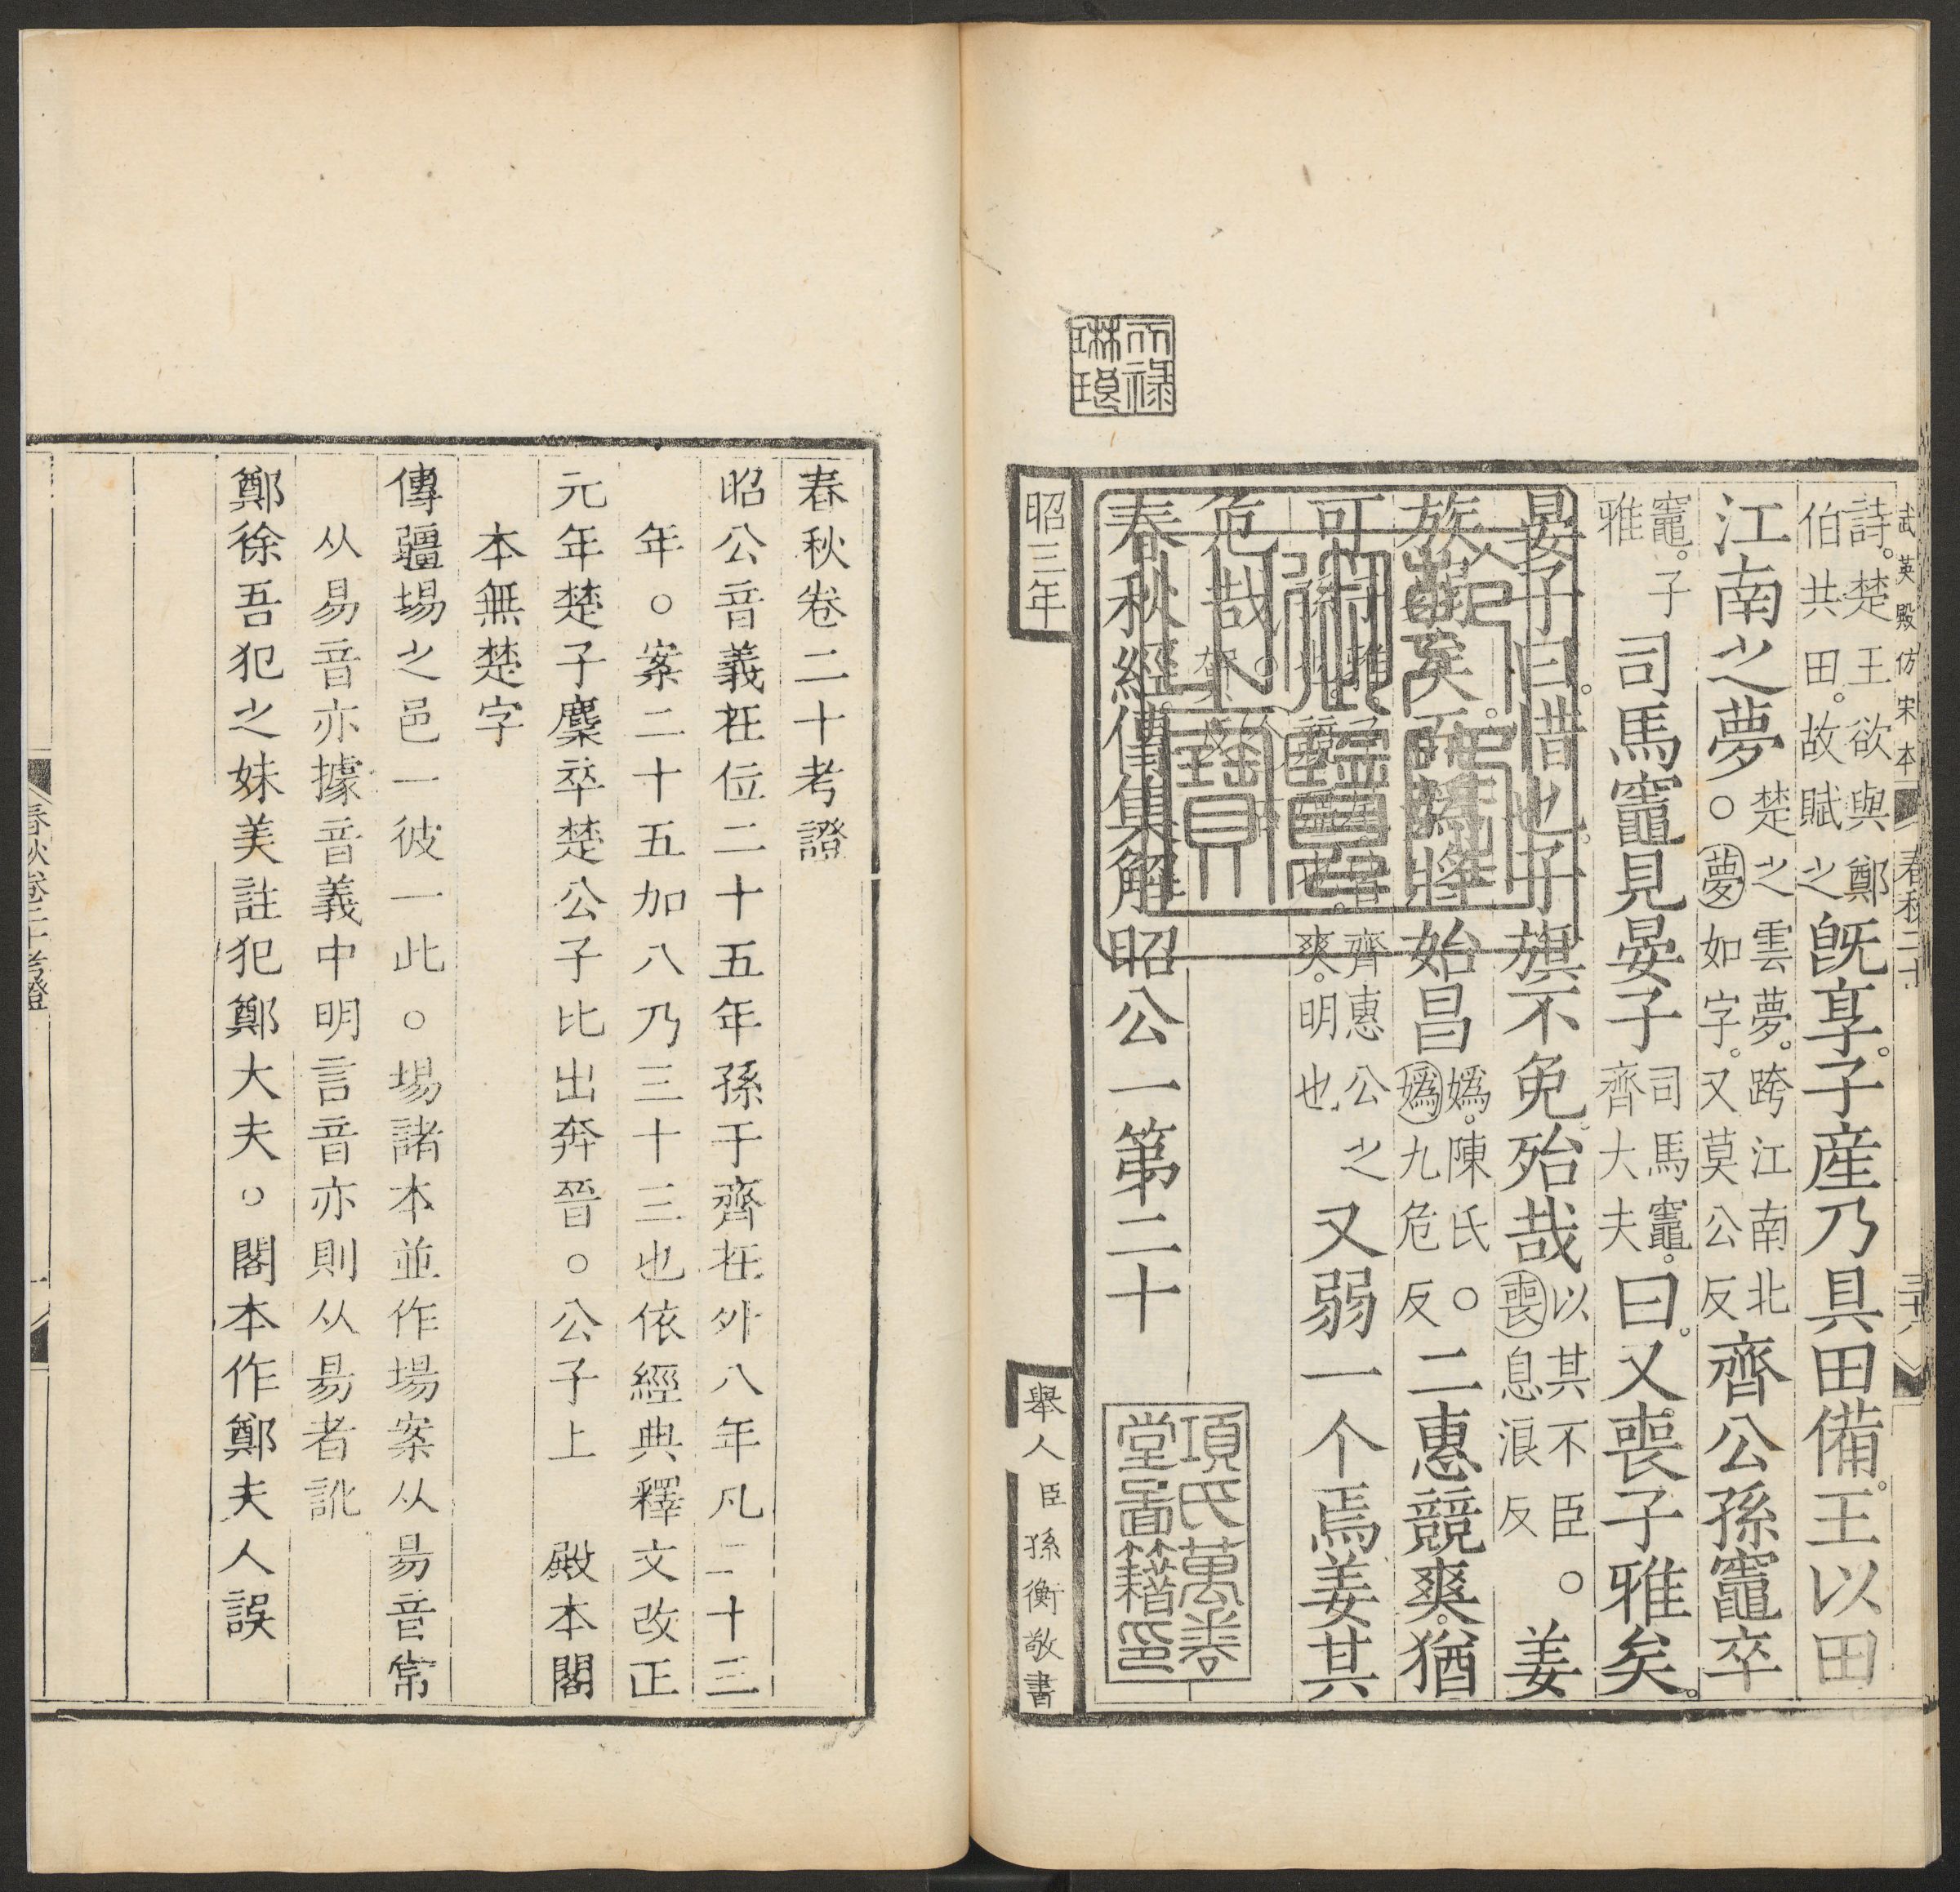 武英殿仿宋本 春秋二十
詩。楚王欲與鄭
伯共田。故賦之
既享。子產乃具田備。王以田
江南之夢。○
楚之雲夢。跨江南北
夢如字。又莫公反
齊公孫竈卒
竈。子
雅
司馬竈見晏子
司馬竈。
齊大夫
曰。又喪子雅矣。
晏子曰。惜也。子旗不免。殆哉
以其不臣。○
喪息浪反
姜
族弱矣。而媯將始昌
媯。陳氏。○
媯九危反
二惠競爽。猶
可
齊惠公之
爽。明也
又弱一个焉。姜其
危哉。
春秋經傳集解昭公一第二十
昭三年
舉人臣孫衡敬書
天祿琳琅
項氏萬卷堂圖籍印
春秋卷二十考證
昭公音義在位二十五年孫于齊在外八年凡二十三
年。○案二十五加八乃三十三也依經典釋文改正
元年楚子麇卒楚公子比出奔晉。○公子上 殿本閣
本無楚字
傳疆埸之邑一彼一此。○埸諸本並作場案从昜音常
从易音亦據音義中明言音亦則从昜者訛
鄭徐吾犯之妹美註犯鄭大夫。○閣本作鄭夫人誤
春秋卷二十考證
一